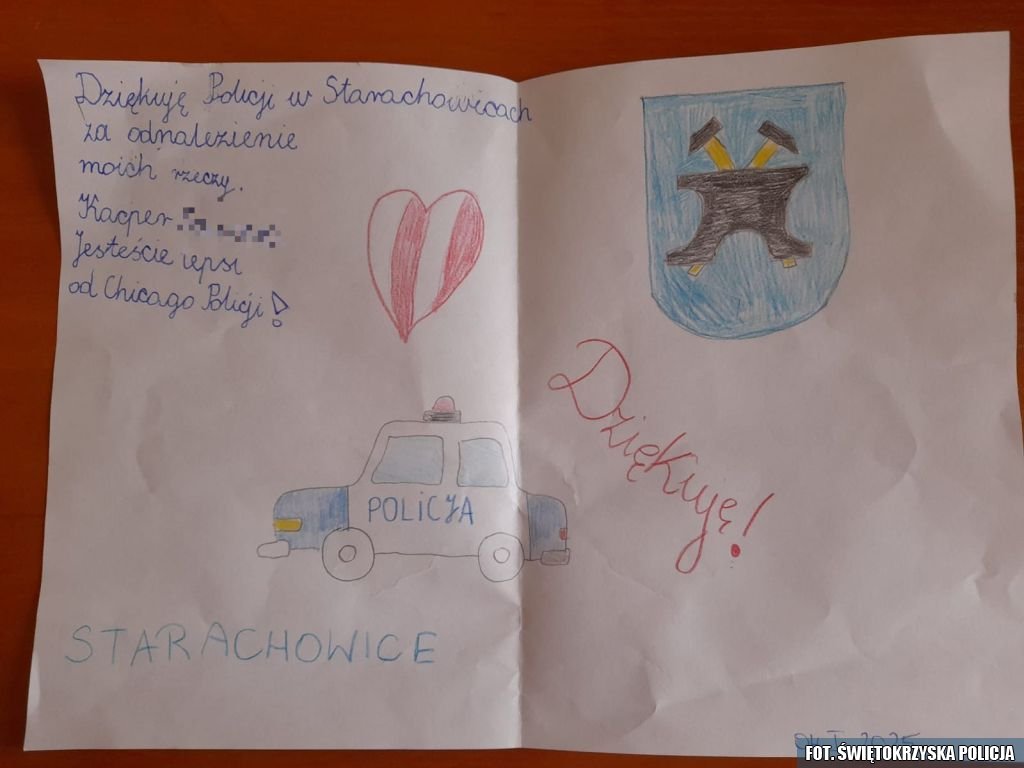 Dziękuję Policji w Starachowicach
za odnalezienie
moich rzeczy.
Kacper
Jesteście lepsi
od Chicago Policji!
Dziękuję!
POLICJA
STARACHOWICE
FOT. ŚWIĘTOKRZYSKA POLICJA